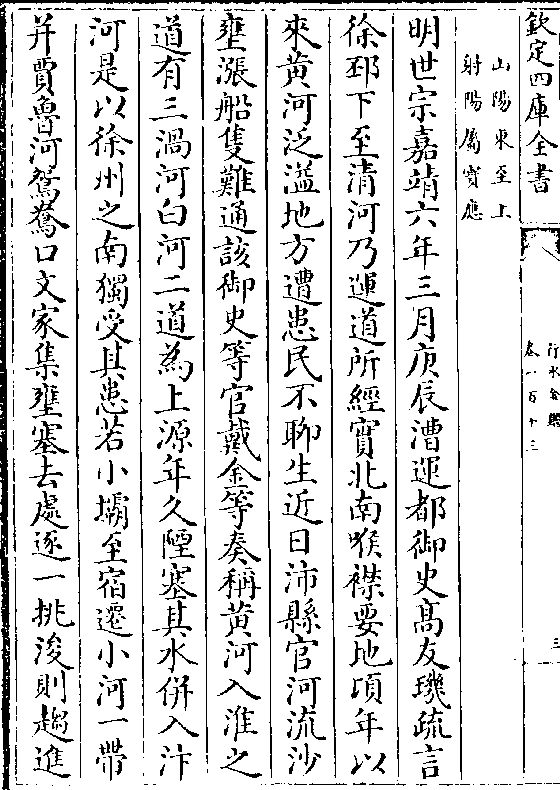 欽定四庫全書
行水金鑑
卷一百十三
三
山陽東至上
射陽屬寶應
明世宗嘉靖六年三月庚辰漕運都御史高友璣疏言
徐邳下至清河乃運道所經實北南喉襟要地頃年以
來黄河泛溢地方遭患民不聊生近日沛縣官河流沙
壅漲船隻難通該御史等官戴金等奏稱黄河入淮之
道有三渦河白河二道為上源年久陻塞其水併入汴
河是以徐州之南獨受其患若小壩至宿遷小河一帶
并賈魯河鴛鴦口文家集壅塞去處逐一挑浚則趨進